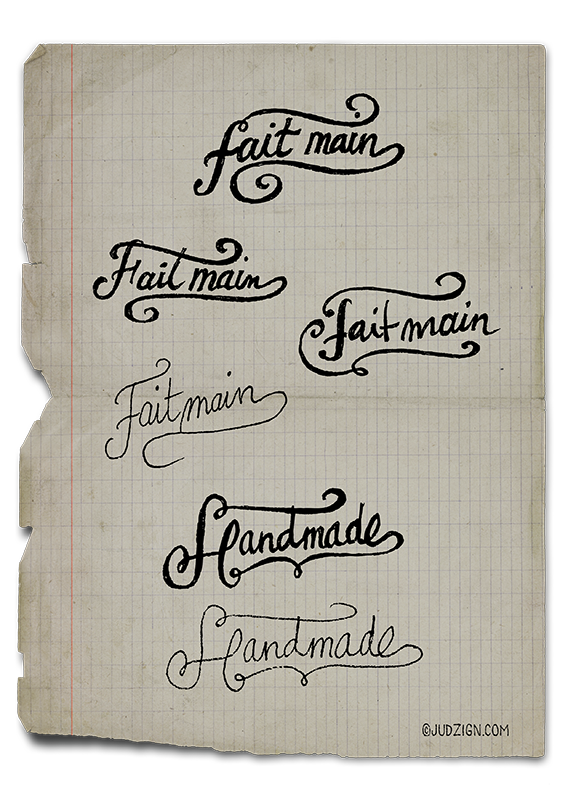 fait main
Fait main
fait main
Fait main
Handmade
Handmade
©JUDZIGN.COM